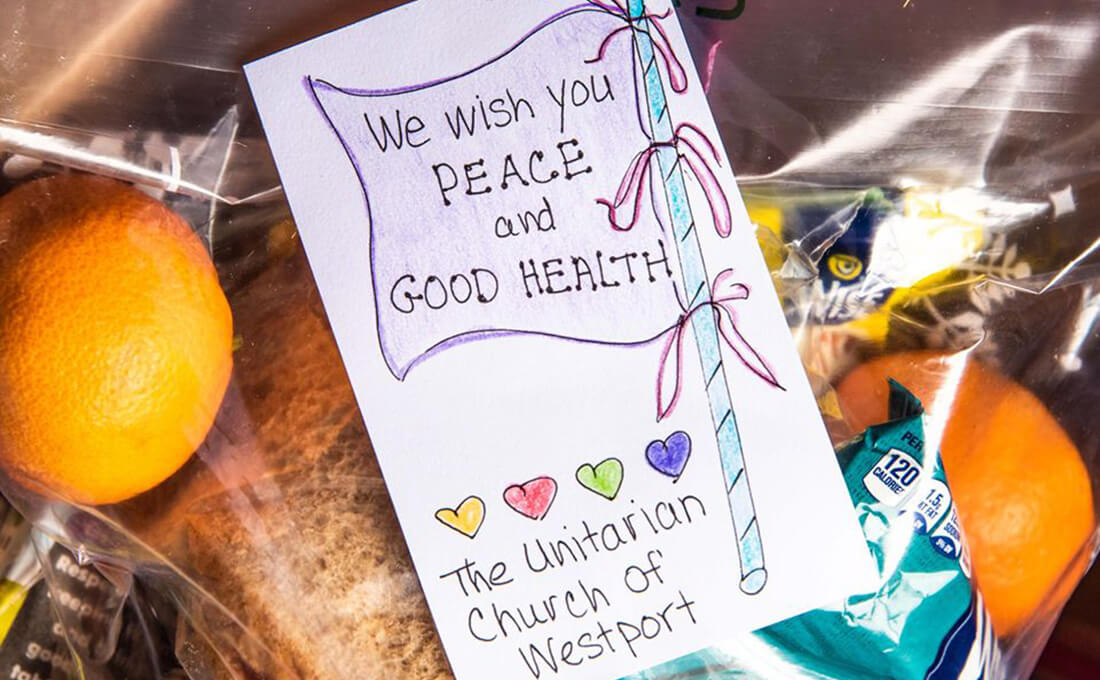 We wish you
PEACE
and
GOOD HEALTH
The Unitarian
Church of
Westport
PER
120
CALORIES
1.5g